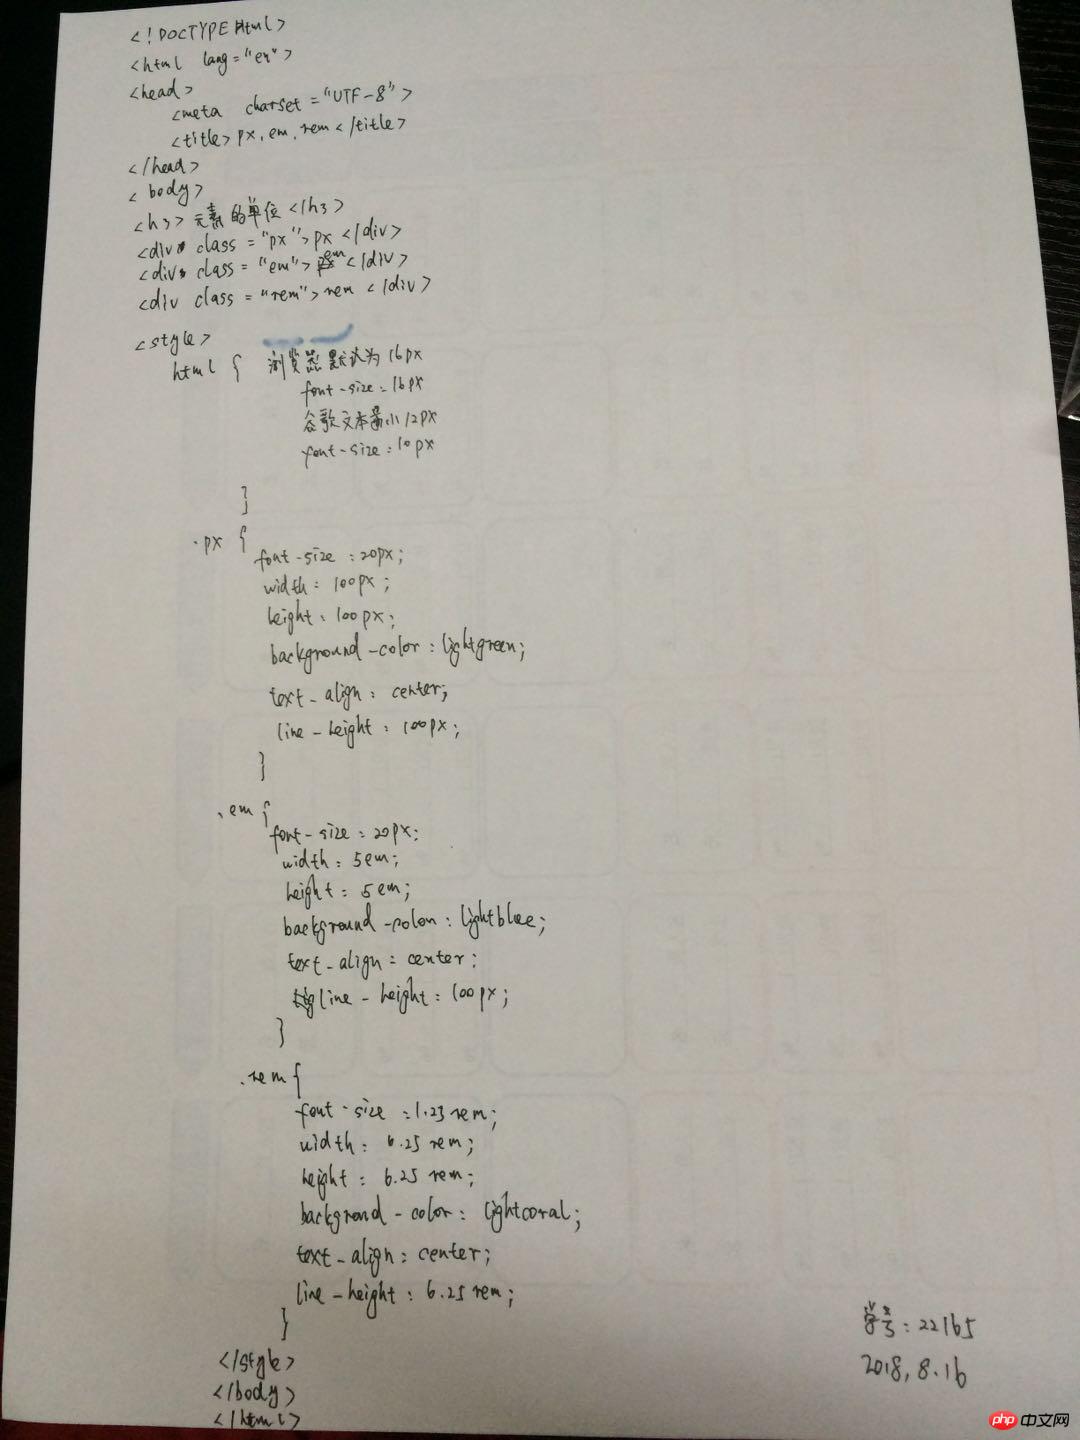 <!DOCTYPE html>
<html lang="en">
<head>
<meta charset="UTF-8">
<title>px,em,rem</title>
</head>
<body>
<h3>元素的单位</h3>
<div class="px">px</div>
<div class="em">em</div>
<div class="rem">rem</div>
<style>
html { 浏览器默认为16px
font-size:16px
谷歌文本最小12px
font-size:10px
}
.px {
font-size:20px;
width:100px;
height:100px;
background-color:lightgreen;
text-align:center;
line-height:100px;
}
.em{
font-size:20px;
width:5em;
height:5em;
background-color:lightblue;
text-align:center;
line-height:100px;
}
.rem{
font-size:1.23rem;
width:6.25rem;
height:6.25rem;
background-color:lightcoral;
text-align:center;
line-height:6.25rem;
}
</style>
</body>
</html>
学号:22165
2018,8.16
php 中文网